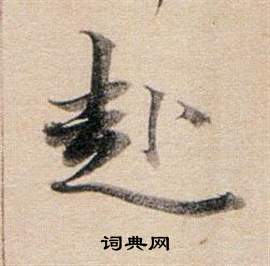 赴
词典网